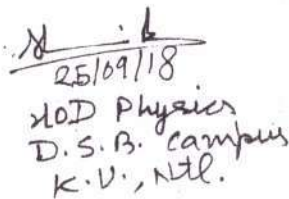 25/09/18
HOD Physics
D.S.B. Campus
K.U., Ntl.